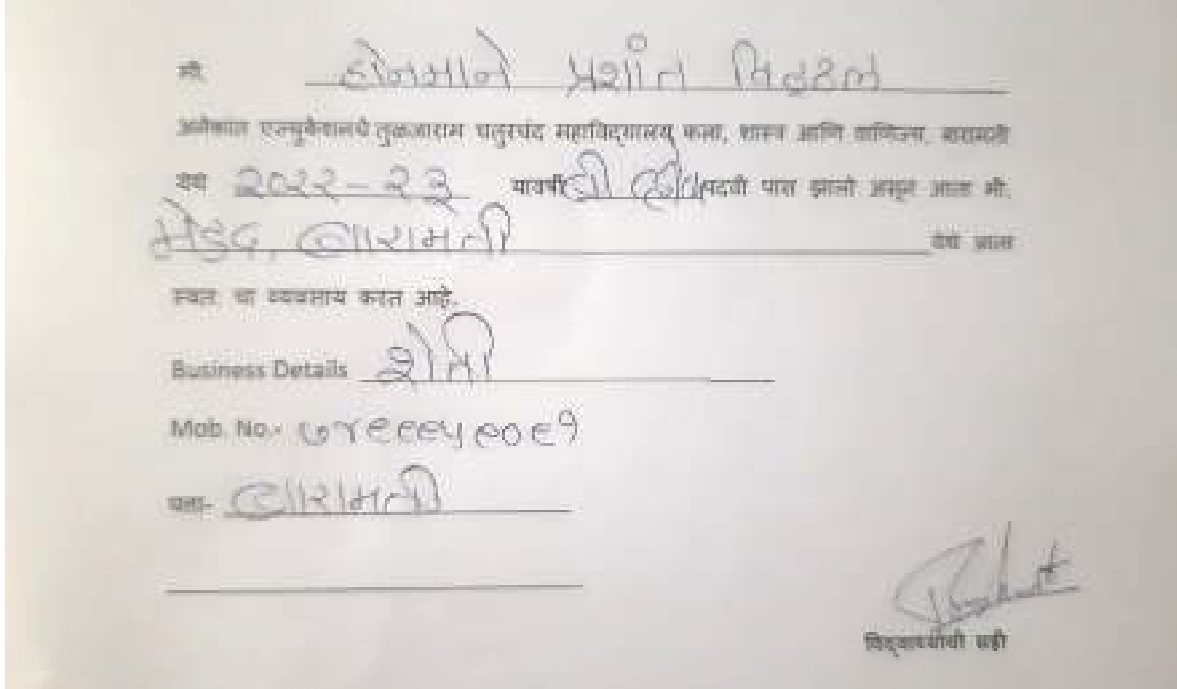 मी, होनमाने प्रशांत विठ्ठल
अनेकांत एज्युकेशनचे तुळजाराम चतुरचंद महाविद्यालय कला, शास्त्र आणि वाणिज्य, बारामती
येथे २०२२-२३ यावर्षी बी पदवी पास झालो असून आता मी.
मेडद, बारामती येथे
स्वतः चा व्यवसाय करत आहे.
Business Details शेती
Mob. No.- ७४९९९५९०९१
पत्ता- बारामती
विद्यार्थ्याची सही